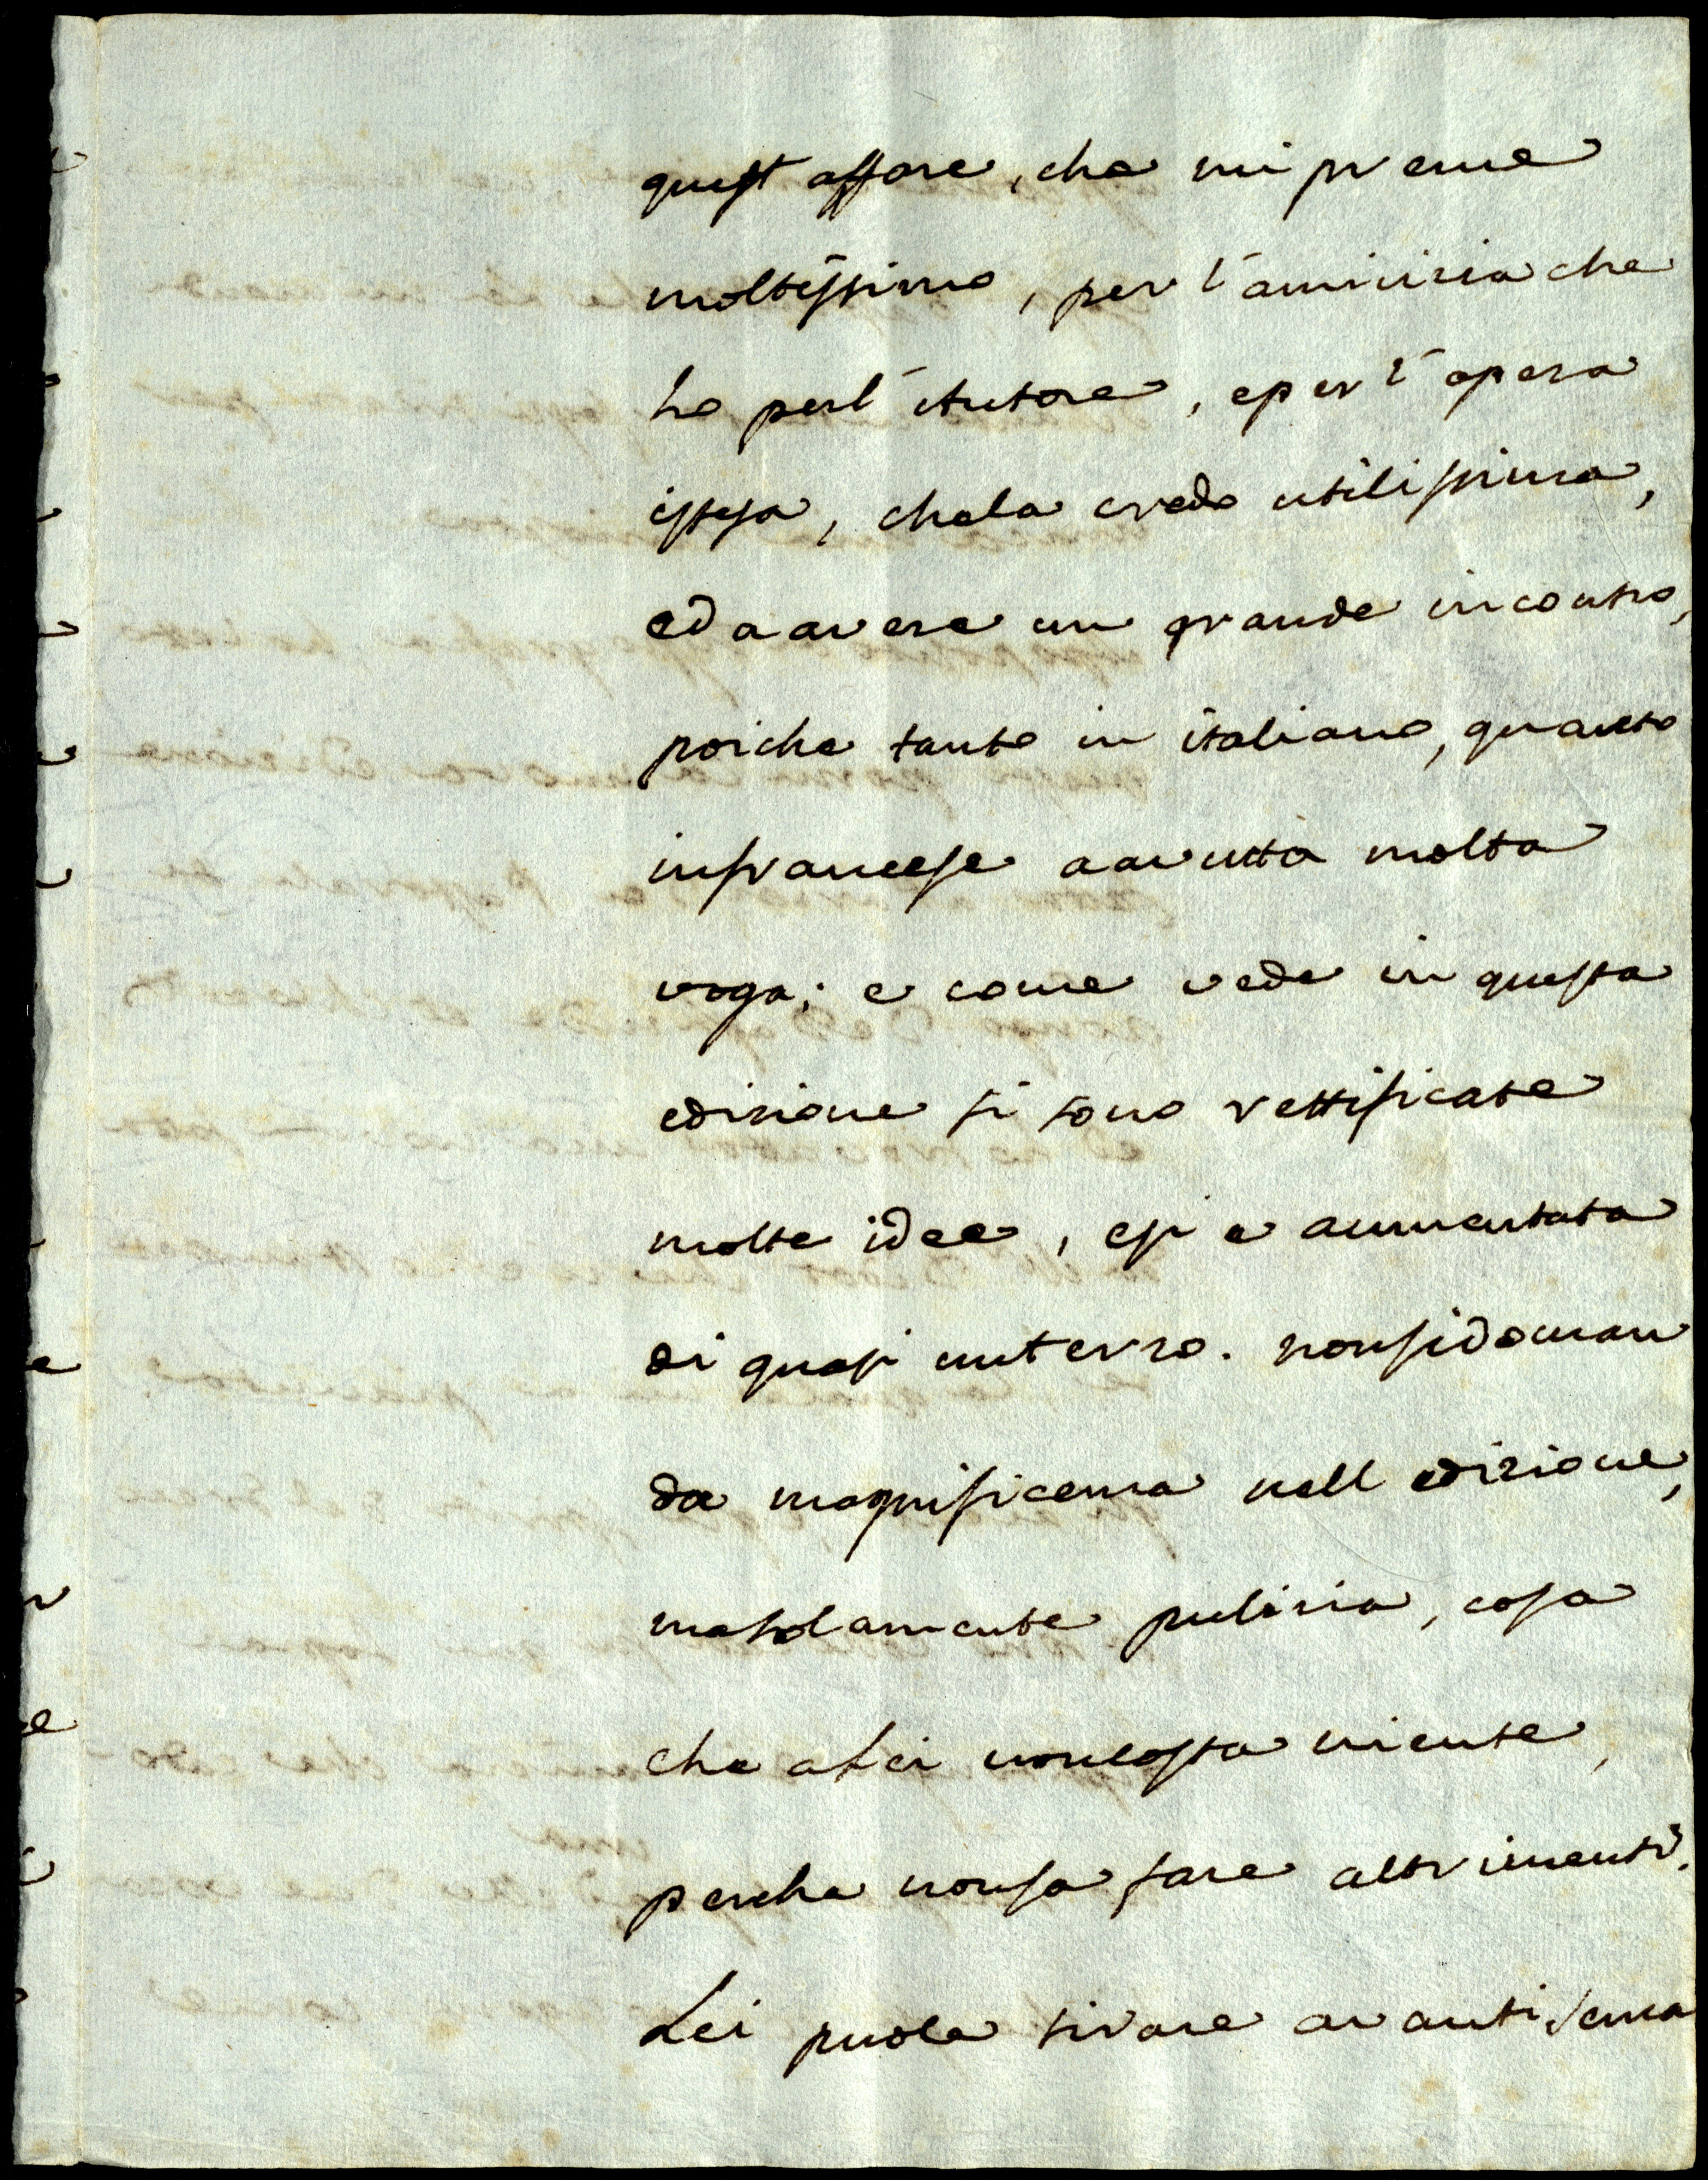 quest affare, che mi preme
moltissimo, per l'amicizia che
ho per l'Autore, e per l'opera
istessa, che la credo utilissima,
ed a avere un grande incontro,
poiche tanto in italiano, quanto
in francese a avutta molta
voga; e come vede in questa
edizione si sono rettificate
molte idee, e si e aumentata
di quasi un terzo. non si doman
da magnificenza nell edizione,
ma solamente pulizia, cosa
che a Lei non costa niente,
perche non sa fare altrimenti.
Lei puole tirare avanti senza